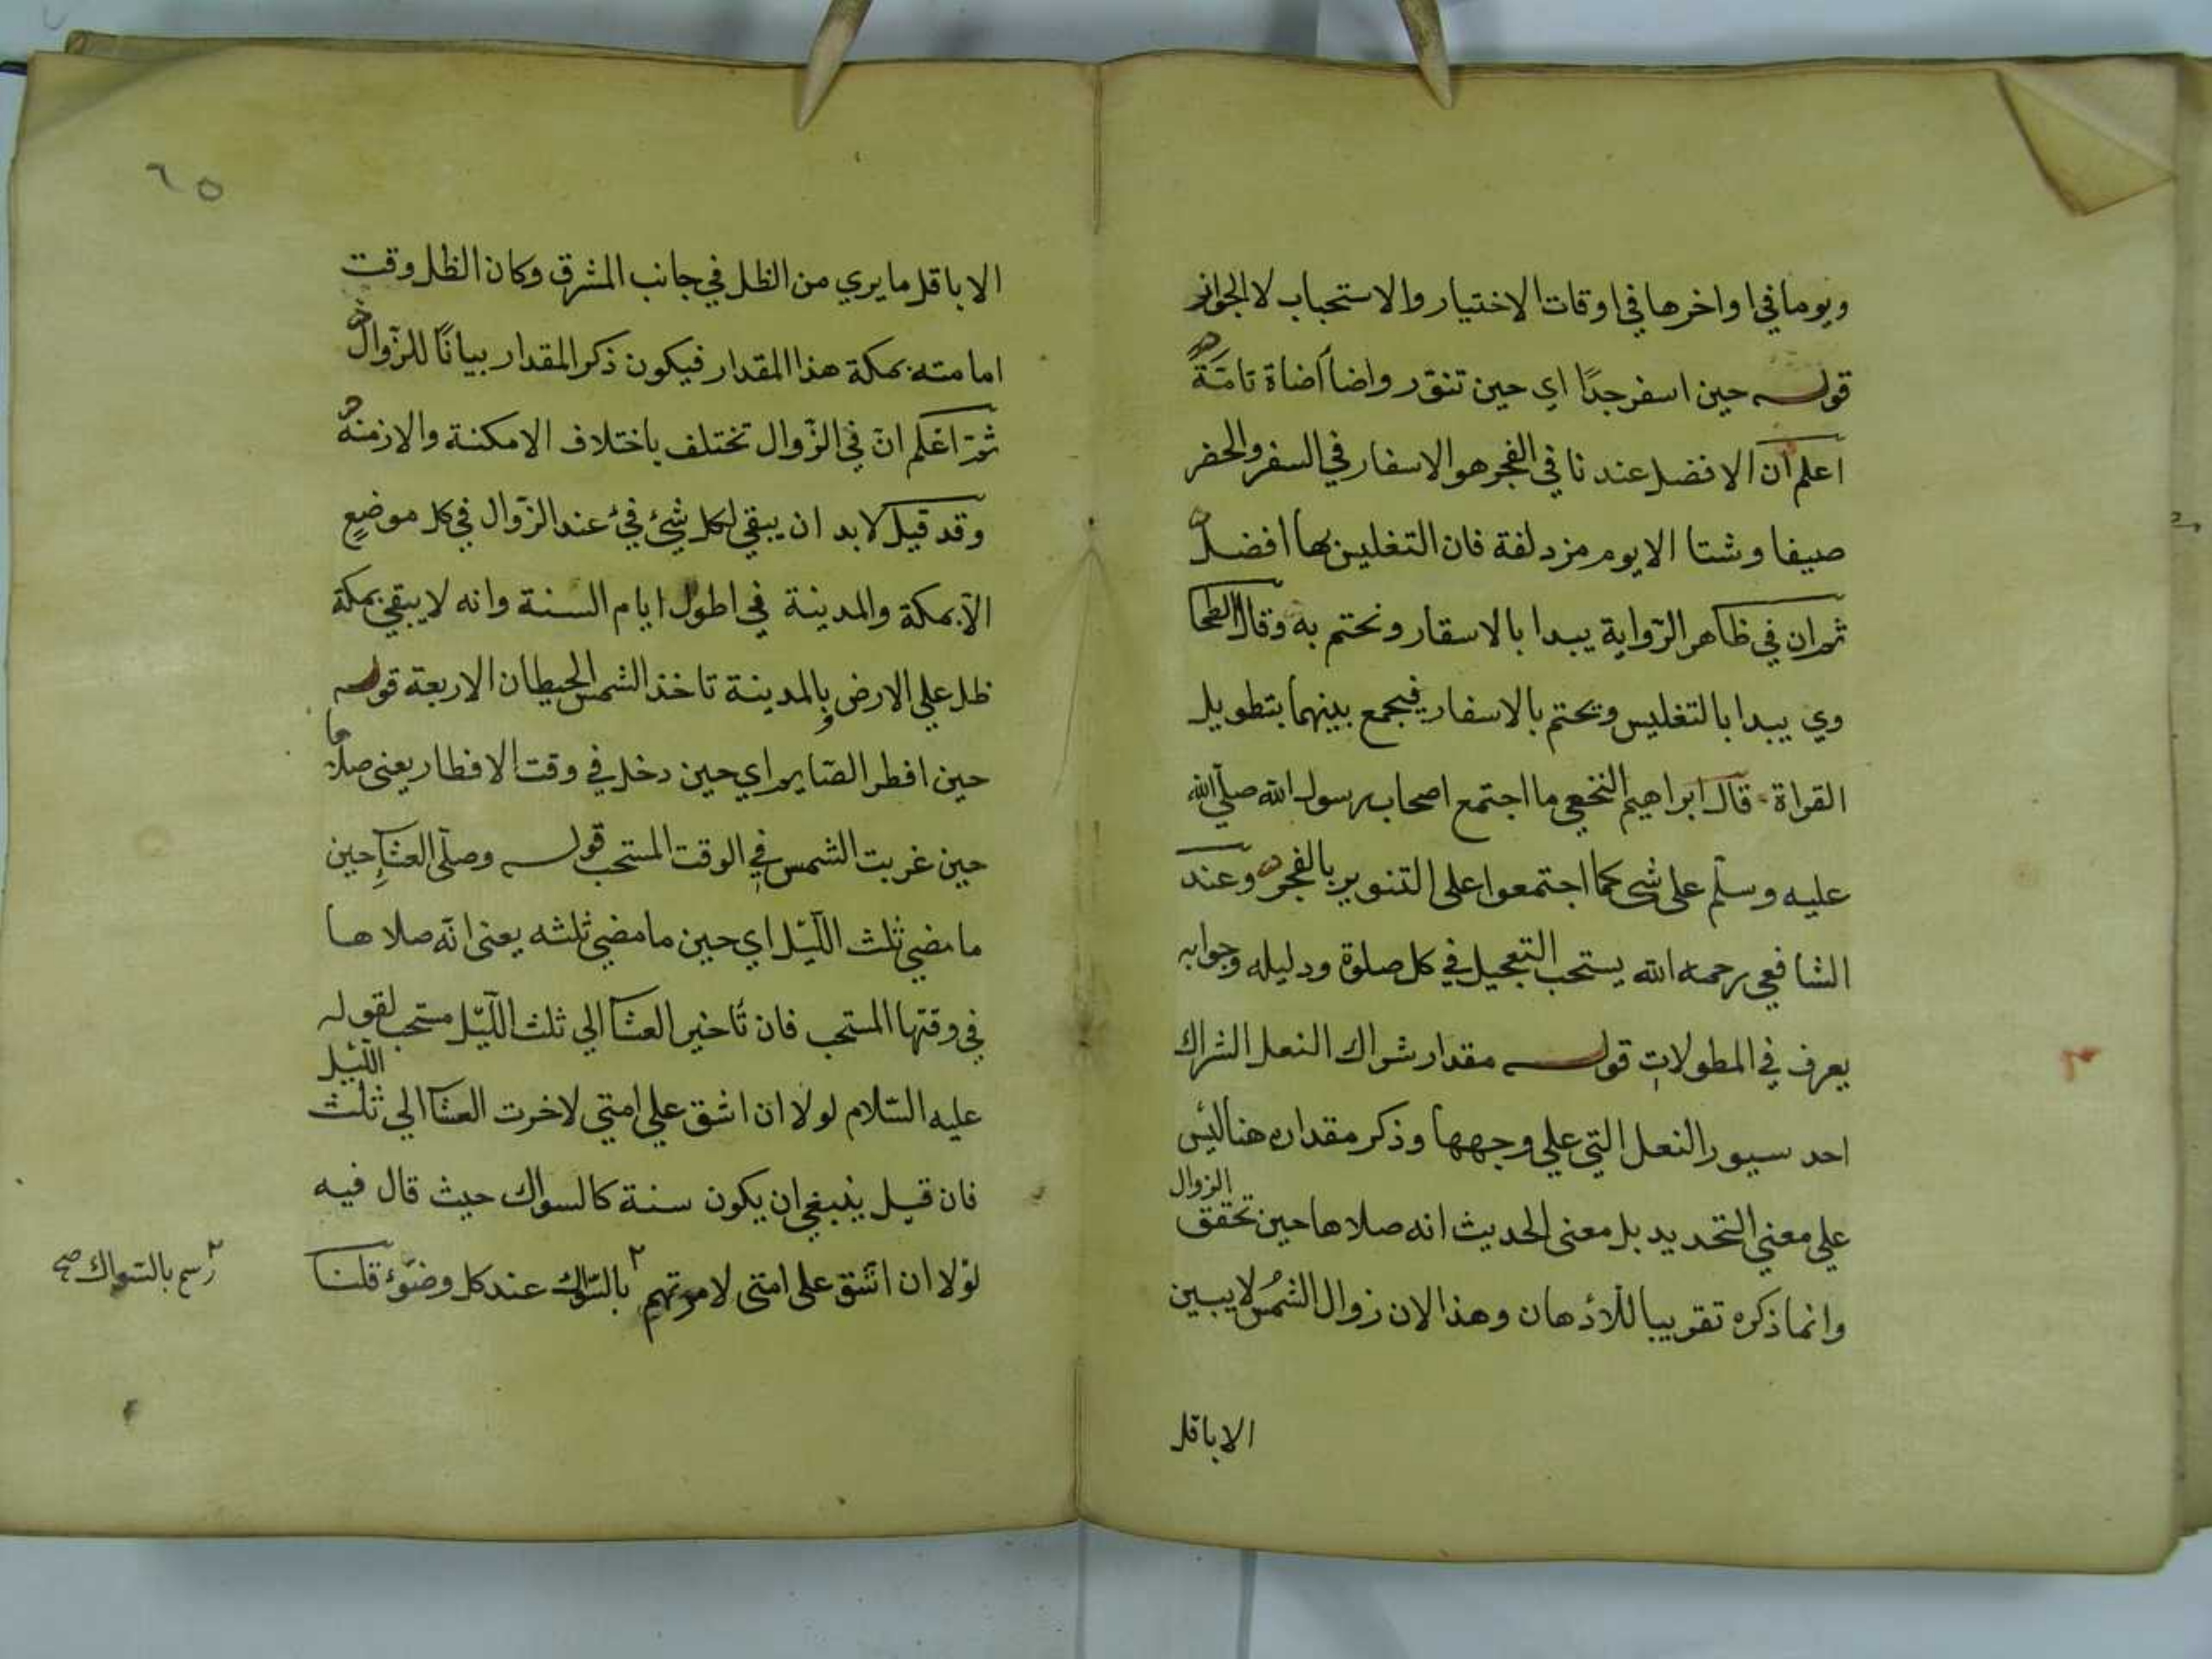 ويوما في اواخرها في اوقات الاختيار والاستحباب لا الجواز
قوله حين اسفر جدًا اي حين تنوّر واضاأضاة تامّةً
اعلم ان الافضل عندنا في الفجر هو الاسفار في السفر والحضر
صيفا وشتا الا يوم مزدلفة فان التغليس بها افضل
ثم ان في ظاهر الرّواية يبدا بالاسفار ونختم به وقال الطحا
وي يبدا بالتغليس ويختم بالاسفار فيجمع بينهما بتطويل
القراة قال ابراهيم النخعي ما اجتمع اصحاب رسول الله صلي الله
عليه وسلّم على شي كما اجتمعوا على التنوير بالفجر وعند
الشافعي رحمه الله يستحب التعجيل في كل صلوة ودليله وجوابه
يعرف في المطولات قوله مقدار شراك النعل الشراك
احد سيور النعل التي علي وجهها وذكر مقداره هنا ليس
علي معني التحديد بل معنى الحديث انه صلاها حين تحقق الزوال
وانما ذكره تقريبا للأذهان وهذا لان زوال الشمس لا يبين
الا باقل
٦٥
الا باقل ما يري من الظل في جانب المشرق وكان الظل وقت
امامته بمكة هذا المقدار فيكون ذكر المقدار بيانًا للزّوال
ثمّ اعلم انّ في الزّوال تختلف باختلاف الامكنة والازمنه
وقد قيل لابد ان يبقي لكل شئ فئ عند الزّوال في كل موضعٍ
الا بمكة والمدينة في اطول ايام السنة وانه لا يبقي بمكة
ظل علي الارض وبالمدينة تاخذ الشمس الحيطان الاربعة قوله
حين افطر الصّايم اي حين دخل في وقت الافطار يعني صلاها
حين غربت الشمس في الوقت المستحب قوله وصلّى العشاء حين
ما مضي ثلث اللّيل اي حين ما مضي ثلثه يعني انّه صلاها
في وقتها المستحب فان تأخير العشا الي ثلث اللّيل مستحب لقوله
عليه السّلام لولا ان اشق علي امتي لاخرت العشا الي ثلث الليل
فان قيل ينبغي ان يكون سنة كالسواك حيث قال فيه
لولا ان اشق على امتى لامرتهم ٢ بالسّواك عند كل وضوء قلنا
٢ بالسّواك صح